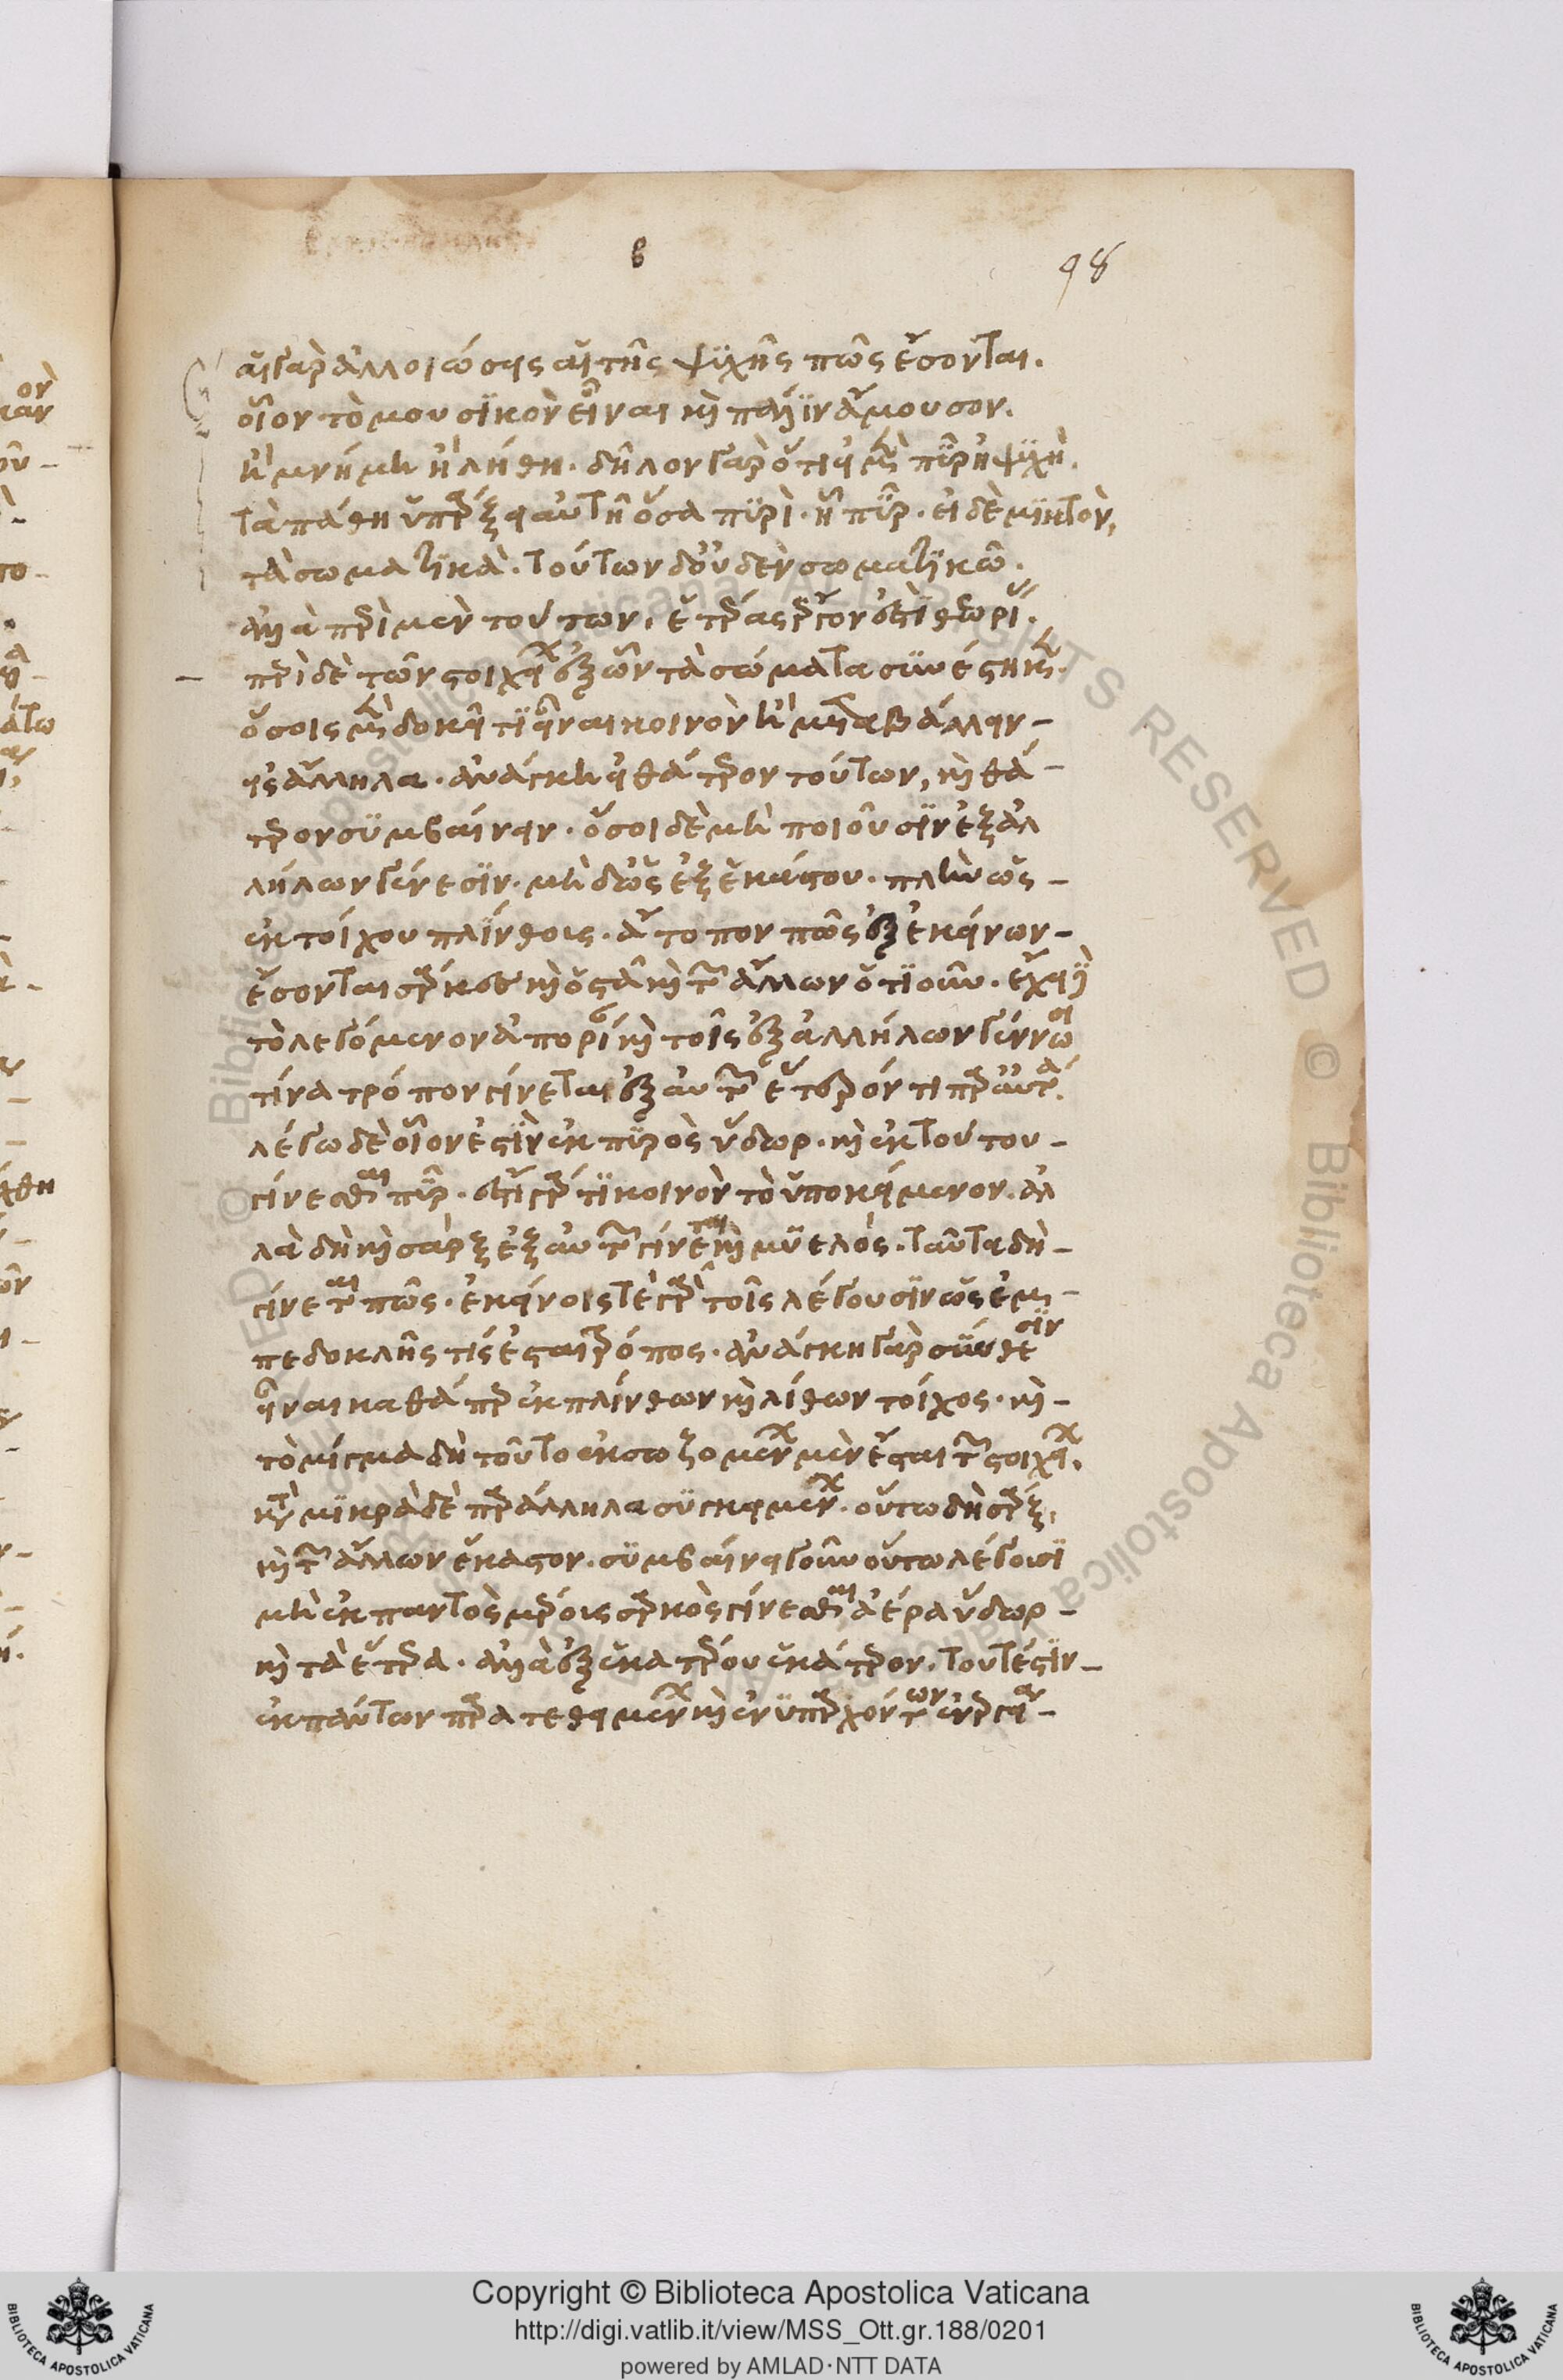 αἱ γὰρ ἀλλοιώσεις αἱ τῆς ψυχῆς πῶς ἔσονται.
οἷον τὸ μουσικὸν εἶναι καὶ πάλιν ἄμουσον.
ἢ μνήμη ἢ λήθη. δῆλον γὰρ ὅτι εἰ μὲν πῦρ ἡ ψυχὴ,
τὰ πάθη ὑπάρξει αὐτῆ ὅσα πυρὶ. ἧ πῦρ. εἰ δὲ μικτὸν,
τὰ σωματικὰ. τούτων δ' οὐδὲν σωματικόν.
ἀλλὰ περὶ μὲν τούτων, ἑτέρας ἔργον ἐστὶ θεωρίας.
περὶ δὲ τῶν στοιχείων ἐξ ὧν τὰ σώματα συνέστηκεν.
ὅσοις μὲν δοκεῖ τι εἶναι κοινὸν ἢ μεταβάλλειν
εἰς ἄλληλα. ἀνάγκη εἰ θάτερον τούτων, καὶ θά
τερον συμβαίνειν. ὅσοι δὲ μὴ ποιοῦσιν ἐξ ἀλ
λήλων γένεσιν. μὴ δ' ὡς ἐξ ἑκάστου. πλὴν ὡς
ἐκ τοίχου πλίνθους. ἄτοπον πῶς ἐξ ἐκείνων
ἔσονται σάρκες καὶ ὀστᾶ καὶ τῶν ἄλλων ὁτιοῦν. ἔχει δὲ
τὸ λεγόμενον ἀπορίαν καὶ τοῖς ἐξ ἀλλήλων γεννῶσι
τίνα τρόπον γίνεται ἐξ αὐτῶν ἕτερόν τι παρ' αὐτά.
λέγω δὲ οἷον ἐστὶν ἐκ πυρὸς ὕδωρ. καὶ ἐκ τούτου
γίνεσθαι πῦρ. ἔστι γάρ τι κοινὸν τὸ ὑποκείμενον. ἀλ
λὰ δὴ καὶ σὰρξ ἐξ αὐτῶν γίνεται καὶ μυελὸς. ταῦτα δὴ
γίνεται πῶς. ἐκείνοις τὲ γὰρ τοῖς λέγουσιν ὡς ἐμ
πεδοκλῆς τίς ἔσται τρόπος. ἀνάγκη γὰρ σύνθεσιν
εἶναι καθάπερ ἐκ πλίνθων καὶ λίθων τοῖχος. καὶ
τὸ μίγμα δὴ τοῦτο ἐκ σωζομένων μὲν ἔσται τῶν στοιχείων.
κατὰ μικρὰ δὲ παράλληλα συγκειμένων. οὕτω δὴ σὰρξ,
καὶ τῶν ἄλλων ἕκαστον. συμβαίνει γοῦν οὕτω λέγουσι
μὴ ἐκ παντὸς μέρους σαρκὸς γίνεσθαι ἀέρα ὕδωρ
καὶ τὰ ἕτερα. ἀλλὰ ἐξ ἑκατέρου ἑκάτερον. τουτέστιν
ἐκ πάντων παρατεθειμένων καὶ ἐνυπαρχόντων